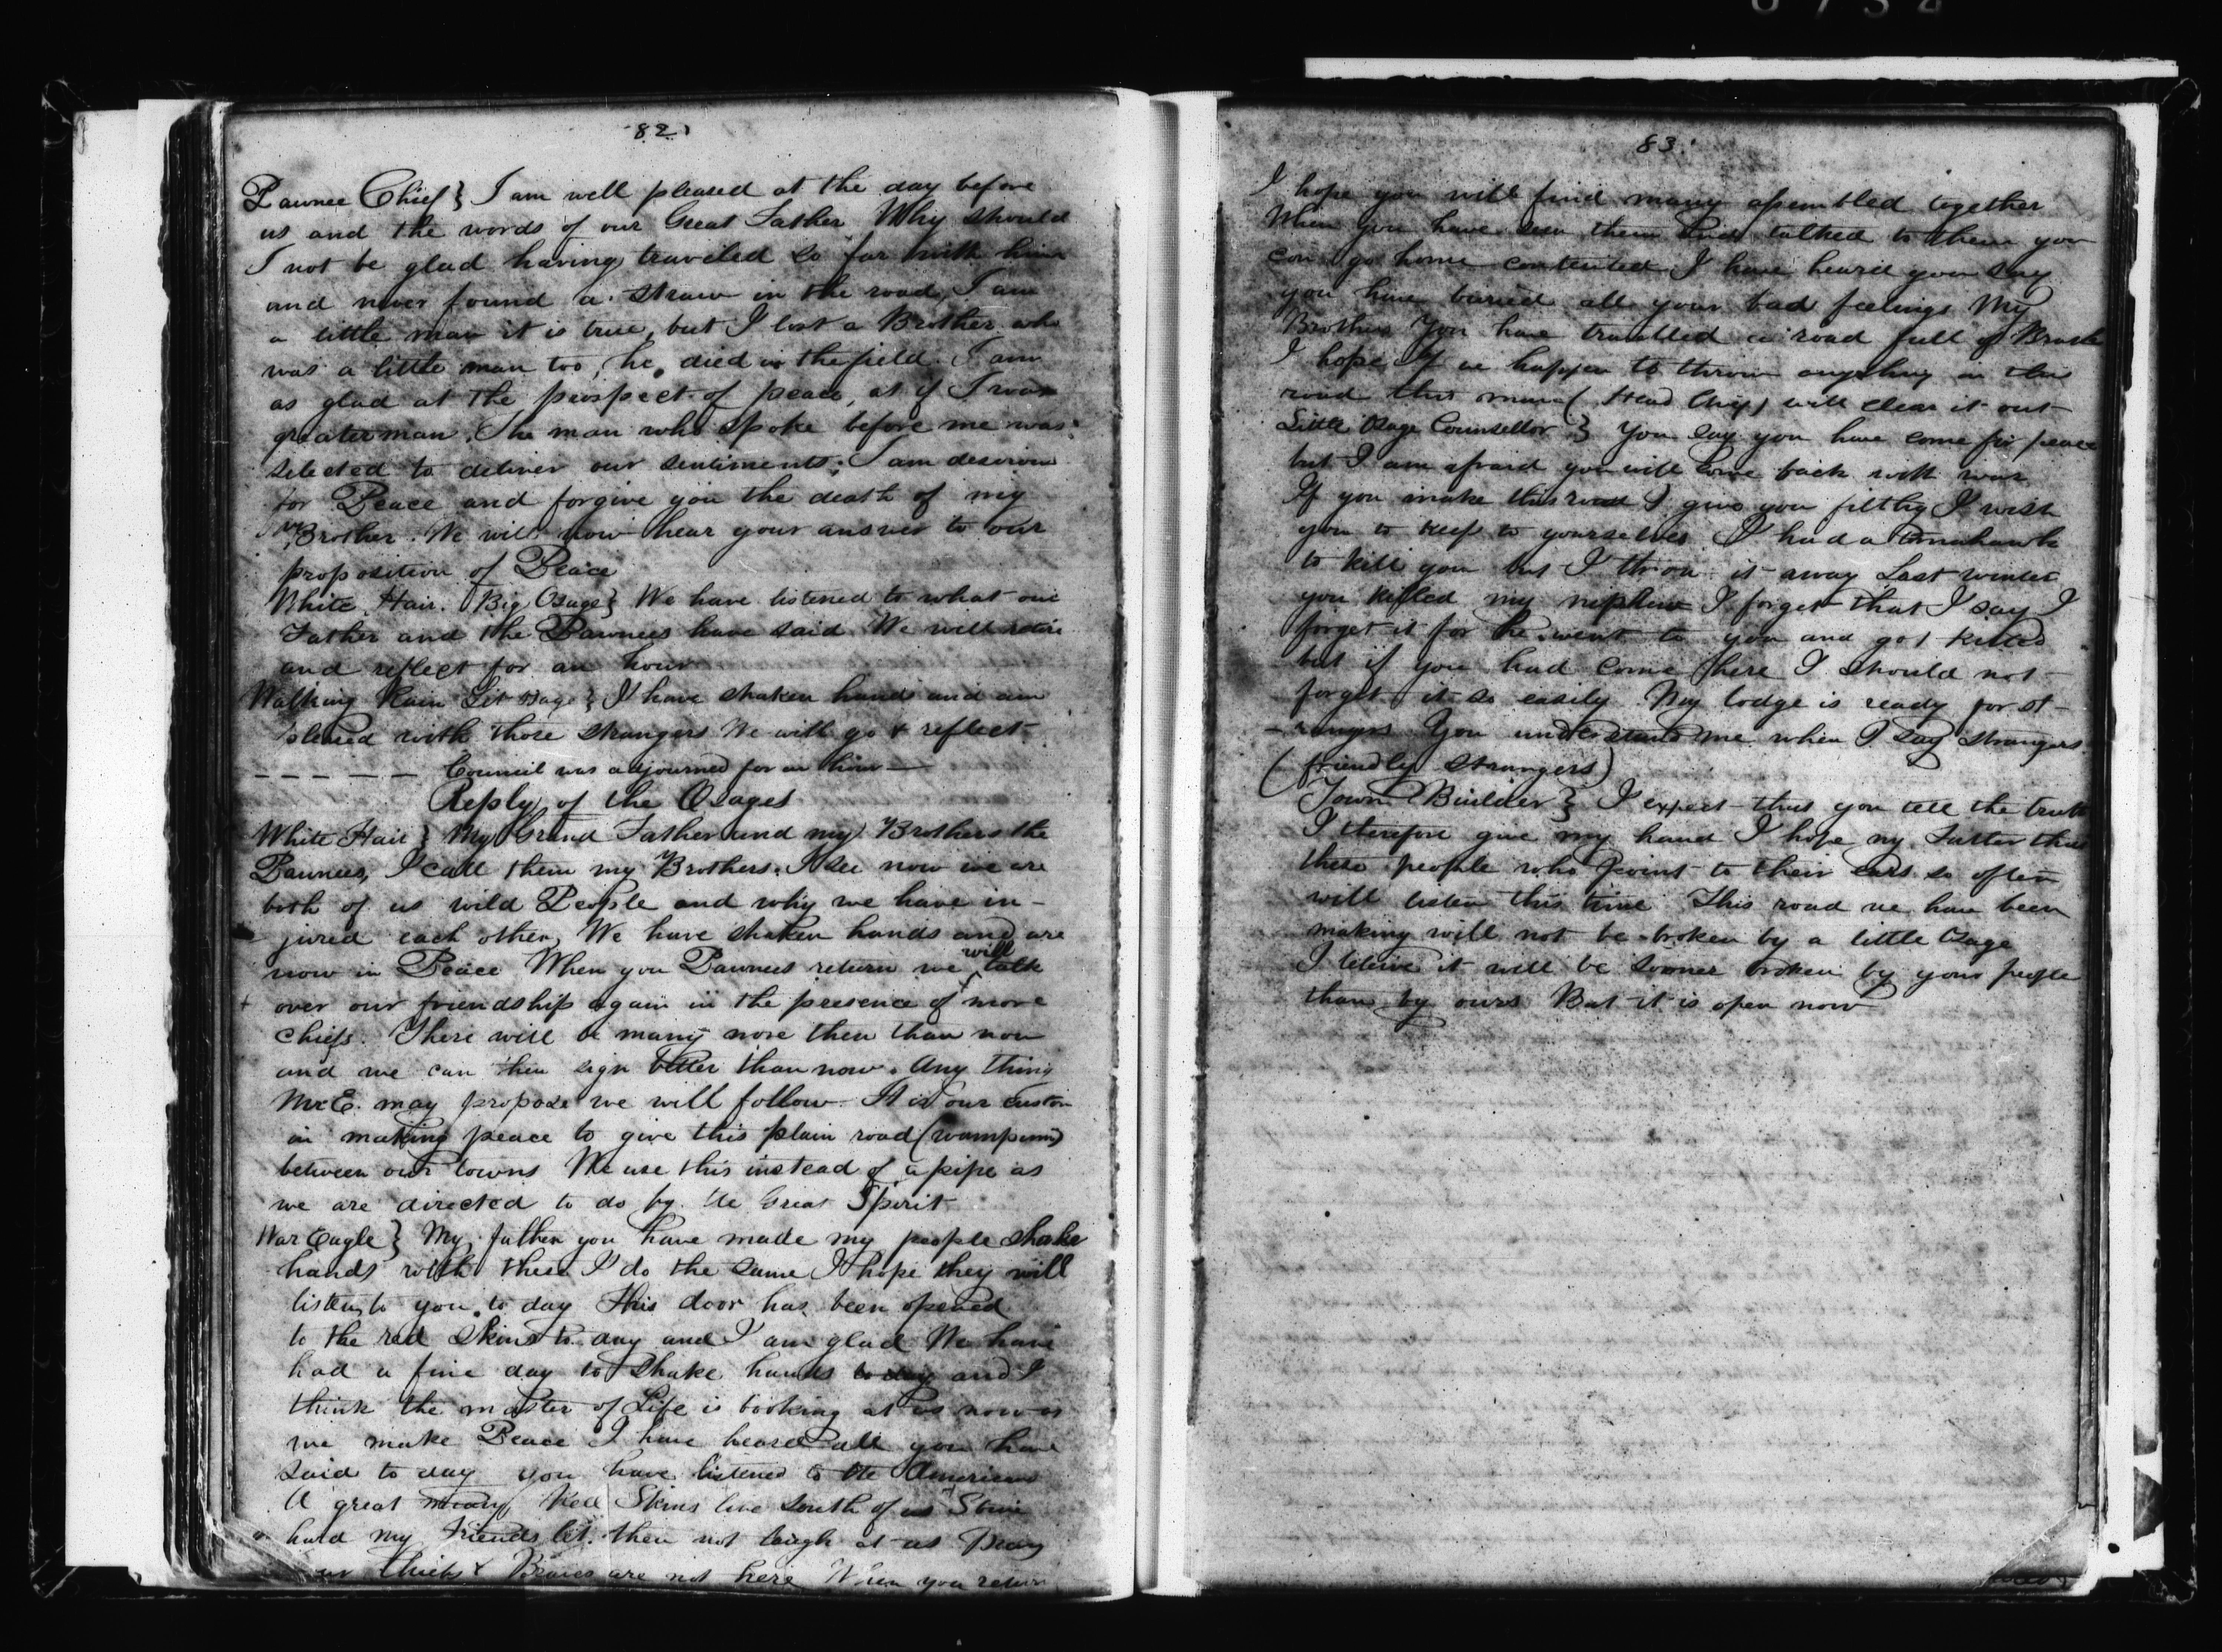 82
Pawnee Chief } I am well pleased at the day before
us and the words of our Great Father Why should
I not be glad having traveled so far with him
and never found a straw in the road, I am
a little man it is true, but I lost a Brother who
was a little man too, he died in the field. I am
as glad at the prospect of peace, as if I was
greater man. The man who spoke before me was
selected to deliver our sentiments. I am desirous
for Peace and forgive you the death of my
Brother. We will now hear your answer to our
proposition of Peace
White Hair. Big Osage } We have listened to what our
Father and the Pawnees have said We will retire
and reflect for an hour
Walking Rain Lit Osage } I have shaken hands and am
pleased with those strangers We will go & reflect
— — — — — Council was adjourned for an hour —
Reply of the Osages
White Hair } My Grand Father and my Brothers the
Pawnees, I call them my Brothers. I see now we are
both of us wild People and why we have in-
jured each other, We have shaken hands and are
now in Peace When you Pawnees return we will talk
over our friendship again in the presence of more
chiefs. There will be many more then than now
and we can then sign better than now. Any thing
Mr E. may propose we will follow. It is our custom
in making peace to give this plain road (wampum)
between our towns We use this instead of a pipe as
we are directed to do by the Great Spirit
War Eagle } My father you have made my people shake
hands with these I do the same I hope they will
listen to you to day This door has been opened
to the red skins to day and I am glad We have
had a fine day to shake hands to day and I
think the master of Life is looking at us now as
we make Peace I have heard all you have
said to day you have listened to the Americans
A great many Red Skins live South of us
hard my Friends let them not laugh at us Many
our Chiefs & Braves are not here When you return
83.
I hope you will find many assembled together
When you have seen them and talked to them you
can go home contented I have heard you say
you have buried all your bad feelings My
Brothers You have travelled a road full of Brush
I hope if we happen to throw anything in this
road this man (Head Chief) will clear it out
Little Osage Counsellor } You say you have come for peace
but I am afraid you will come back with war
If you make this road I give you filthy I wish
you to keep to yourselves I had a tomahawk
to kill you but I throw it away Last winter
you killed my nephew I forget that I say I
forget it for he went to you and got killed
but if you had come here I should not
forget it so easily My lodge is ready for st-
-rangers You understand me when I say strangers
(friendly strangers)
Town Builder } I expect that you tell the truth
I therefore give my hand I hope my Father that
these people who point to their ears so often
will listen this time This road we have been
making will not be broken by a little Osage
I believe it will be sooner broken by your people
than by ours But it is open now